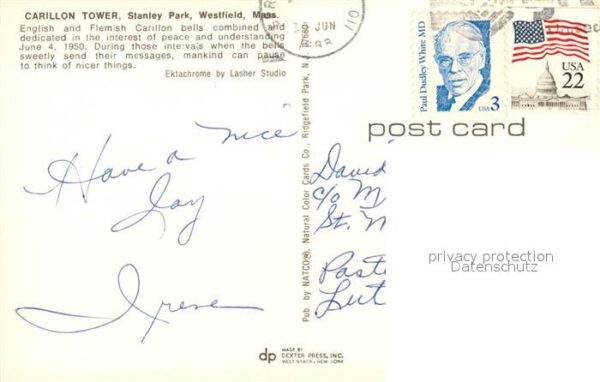 CARILLON TOWER, Stanley Park, Westfield, Mass.
English and Flemish Carillon bells combined and
dedicated in the interest of peace and understanding
June 4, 1950. During those intervals when the bells
sweetly send their messages, mankind can pause
to think of nicer things.
Ektachrome by Lasher Studio
JUN
110
Paul Dudley White MD
USA 3
USA
22
post card
Have a nice
day
Irene
Pub by NATCO®, Natural Color Cards Co., Ridgefield Park, N.J. 07660
David
c/o M
St. M
privacy protection
Datenschutz
Paste
Lut
dp
MADE BY
DEXTER PRESS, INC.
WEST NYACK, NEW YORK